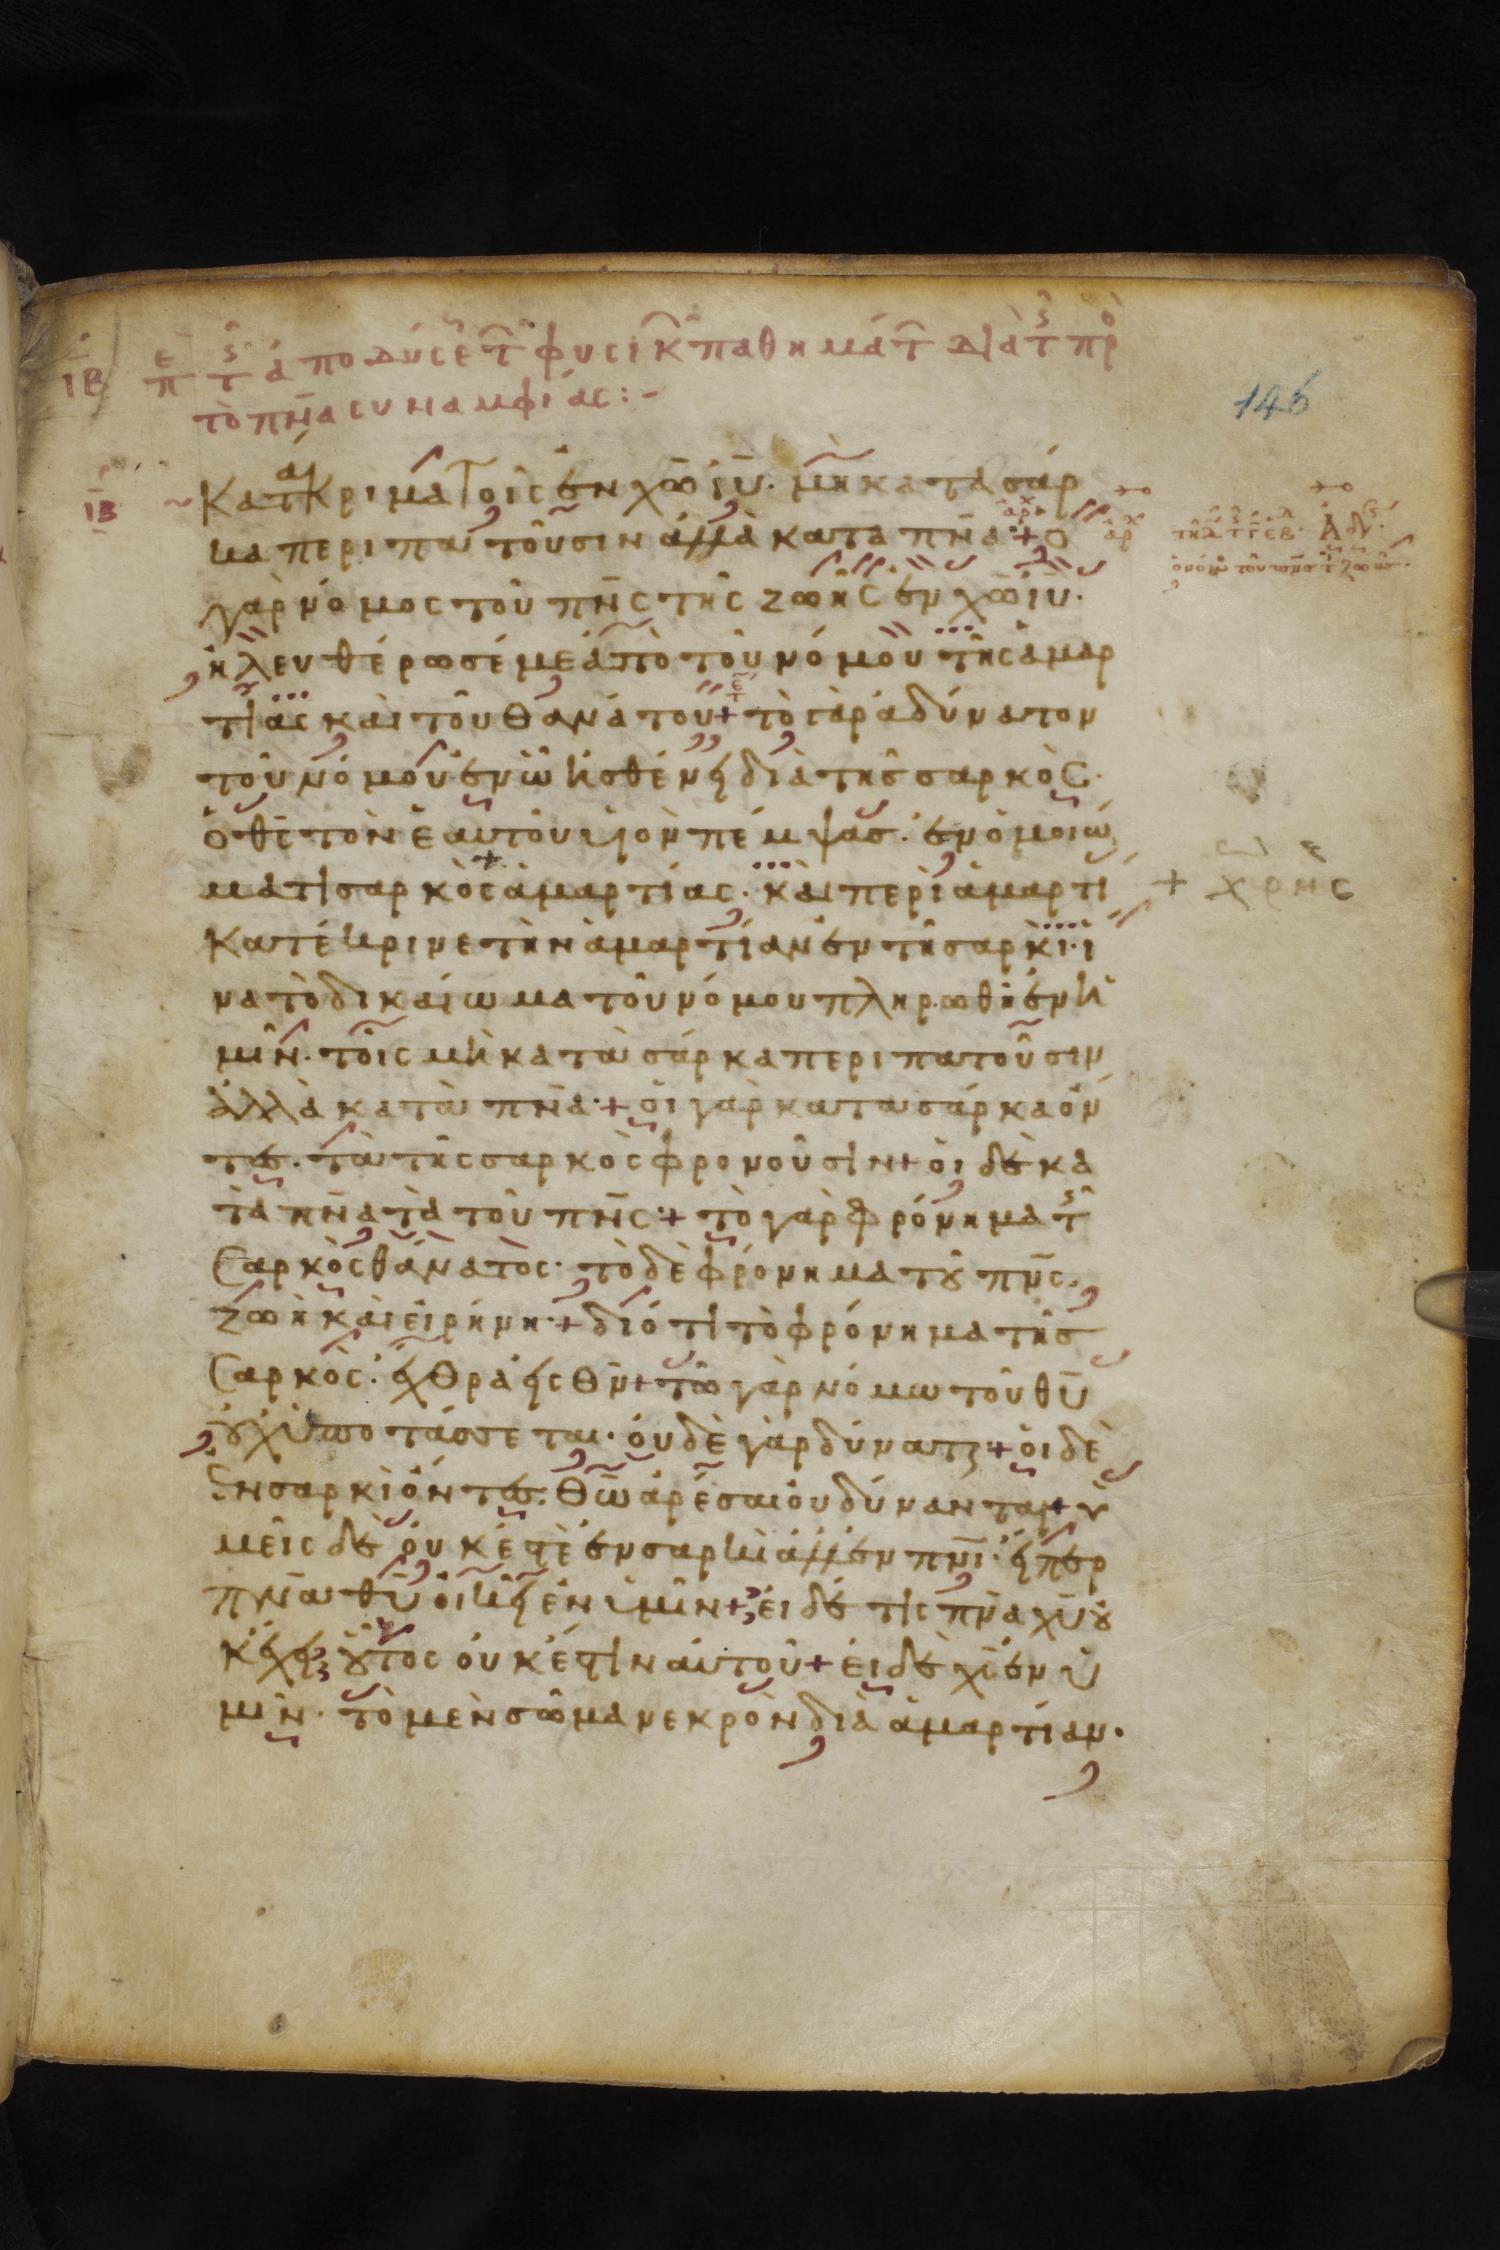 ΙΒ ΕΠ Τ ἀποδύσε Τ φυσικ παθημάτ διὰ τ πρ
τὸ πν̅α συναμφίας:-
146
ΙΒ Κατάκριμα τοῖς ἐν χω̅ ιυ̅. μὴ κατα σάρ
κα περιπατοῦσιν ἀλλὰ κατα πν̅α + ὁ
γὰρ νόμος τοῦ πν̅ς τῆς ζωῆς ἐν χω̅ ιυ̅.
ἠλευθέρωσέ με ἀπὸ τοῦ νόμου τῆς ἁμαρ
τίας καὶ τοῦ θανάτου + τὸ γὰρ ἀδύνατον
τοῦ νόμου ἐν ᾧ ἠσθένει διὰ τῆς σαρκὸς.
ὁ θς̅ τὸν ἑαυτοῦ υἱὸν πέμψας. ἐν ὁμοιώ
ματι σαρκὸς ἁμαρτίας. καὶ περὶ ἁμαρτί
+ χρης
κατέκρινε τὴν ἁμαρτίαν ἐν τῇ σαρκὶ. ἵ
να τὸ δικαίωμα τοῦ νόμου πληρωθῇ ἐν ἡ
μῖν. τοῖς μὴ κατὰ σάρκα περιπατοῦσιν
ἀλλὰ κατὰ πν̅α. + οἱ γὰρ κατὰ σάρκα ὄν
τες. τὰ τῆς σαρκὸς φρονοῦσιν + οἱ δὲ κα
τὰ πν̅α τὰ τοῦ πν̅ς + τὸ γὰρ φρόνημα τ
σαρκὸς θάνατος. τὸ δὲ φρόνημα τοῦ πν̅ς.
ζωὴ καὶ εἰρήνη. + διότι τὸ φρόνημα τῆς
σαρκὸς. ἔχθρα εἰς θν̅ + τῷ γὰρ νόμω τοῦ θυ̅
οὐχ ὑποτάσσεται. οὐδὲ γὰρ δύναται + οἱ δὲ
ἐν σαρκὶ ὄντες. θω̅ ἀρέσαι οὐ δύνανται + ὑ
μεῖς δὲ οὐκ ἐστὲ ἐν σαρκὶ ἀλλ ἐν πν̅ι. εἴπερ
πν̅α θυ̅ οἰκεῖ ἐν ὑμῖν + εἰ δέ τις πν̅α χυ̅ οὐ
κ ἔχει οὗτος οὐκ ἔστιν αὐτοῦ + εἰ δὲ χς̅ ἐν ὑ
μῖν. τὸ μὲν σῶμα νεκρὸν διὰ ἁμαρτίαν.